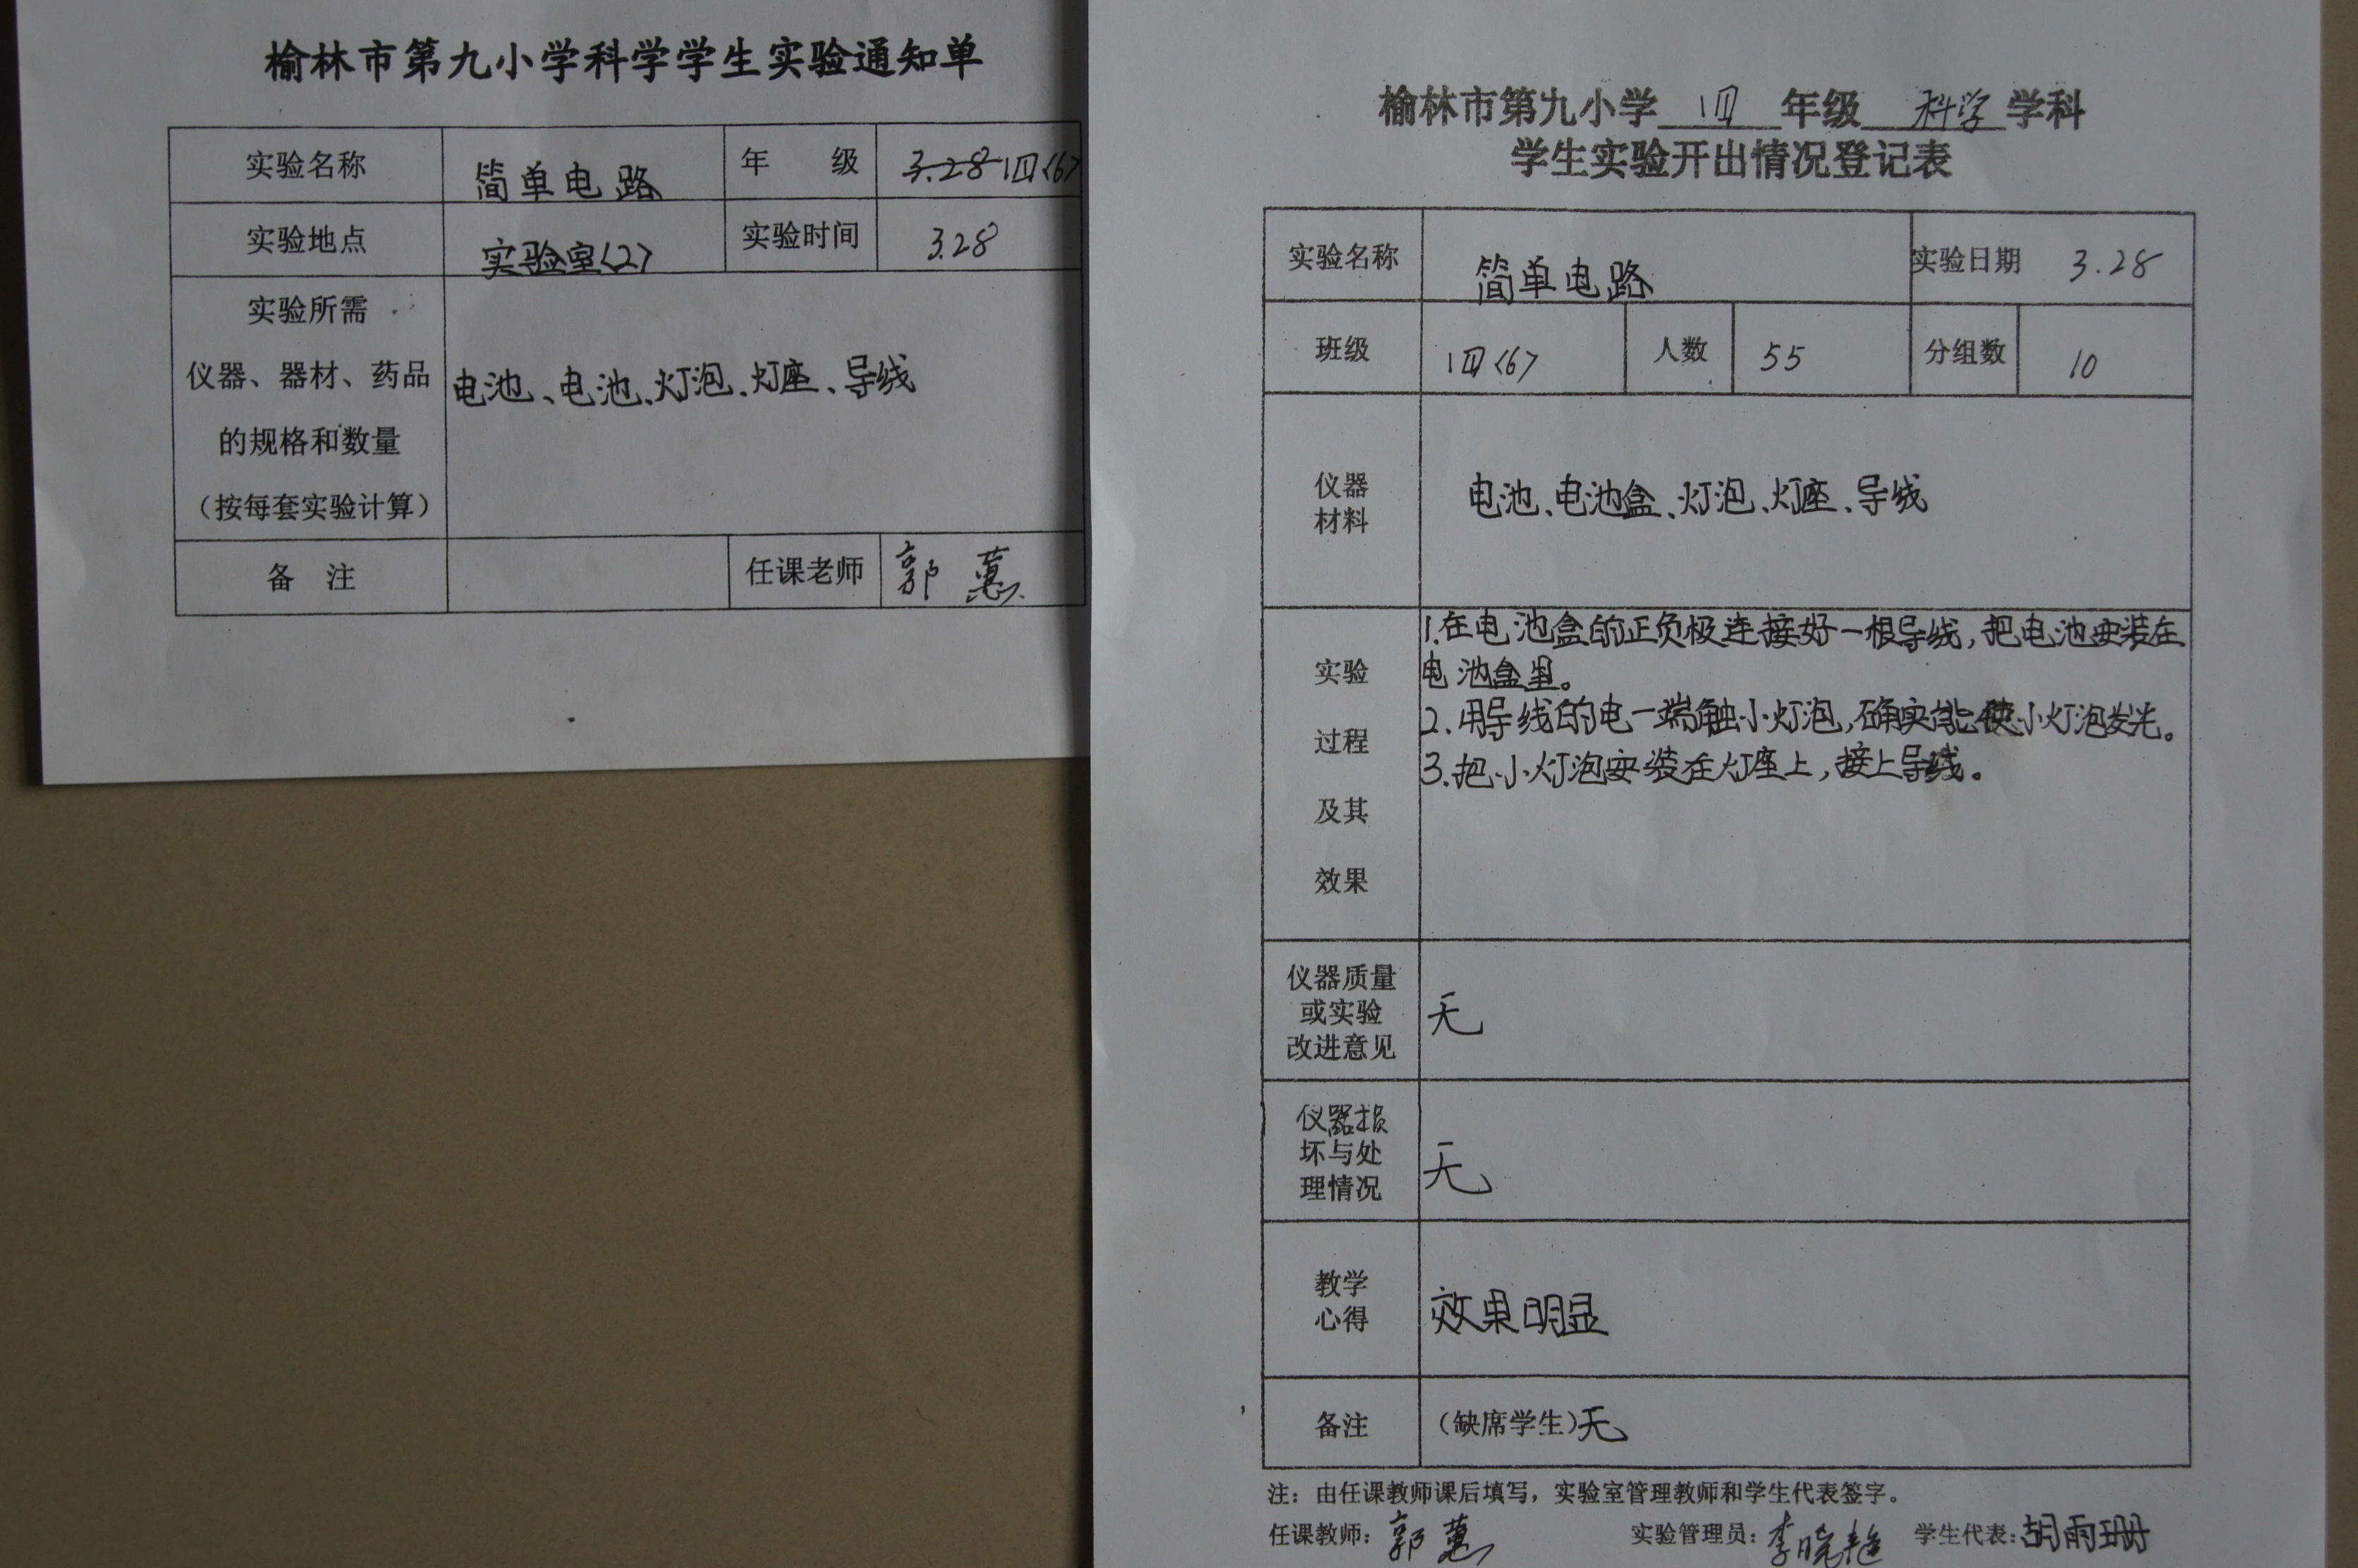 榆林市第九小学科学学生实验通知单
实验名称 简单电路 年 级 3.28 四(6)
实验地点 实验室(2) 实验时间 3.28
实验所需
仪器、器材、药品
的规格和数量
(按每套实验计算)
电池、电池、灯泡、灯座、导线
备 注 任课老师 郭蕙
榆林市第九小学 四 年级 科学 学科
学生实验开出情况登记表
实验名称 简单电路 实验日期 3.28
班级 四(6) 人数 55 分组数 10
仪器
材料
电池、电池盒、灯泡、灯座、导线
实验
过程
及其
效果
1.在电池盒的正负极连接好一根导线,把电池安装在
电池盒里。
2.用导线的电一端触小灯泡,确实能使小灯泡发光。
3.把小灯泡安装在灯座上,接上导线。
仪器质量
或实验
改进意见
无
仪器损
坏与处
理情况
无
教学
心得
效果明显
备注 (缺席学生)无
注:由任课教师课后填写,实验室管理教师和学生代表签字。
任课教师:郭蕙 实验管理员:李晓艳 学生代表:胡雨珊